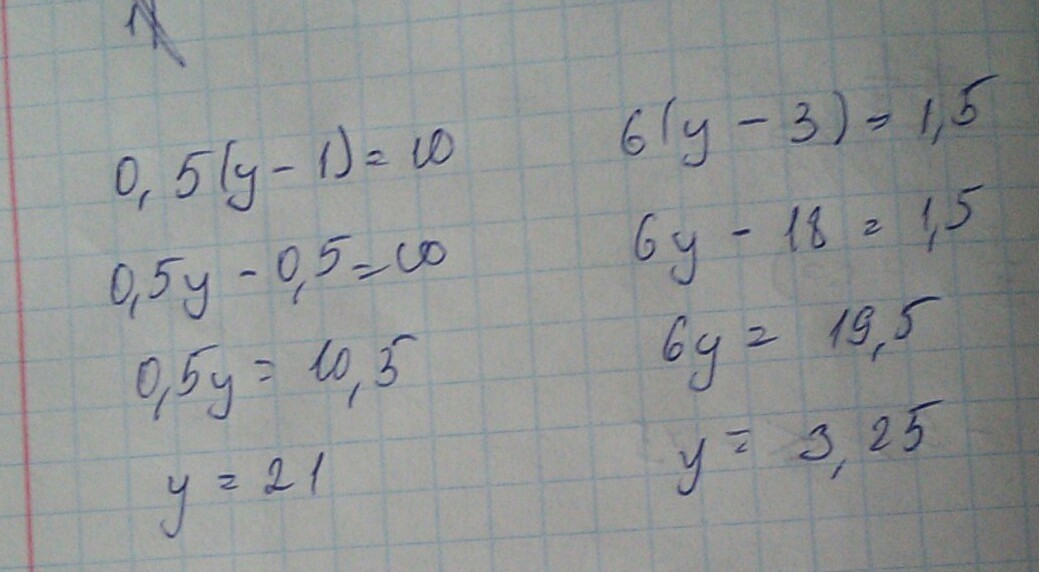 0,5(y-1)=10
0,5y-0,5=10
0,5y=10,5
y=21
6(y-3)=1,5
6y-18=1,5
6y=19,5
y=3,25